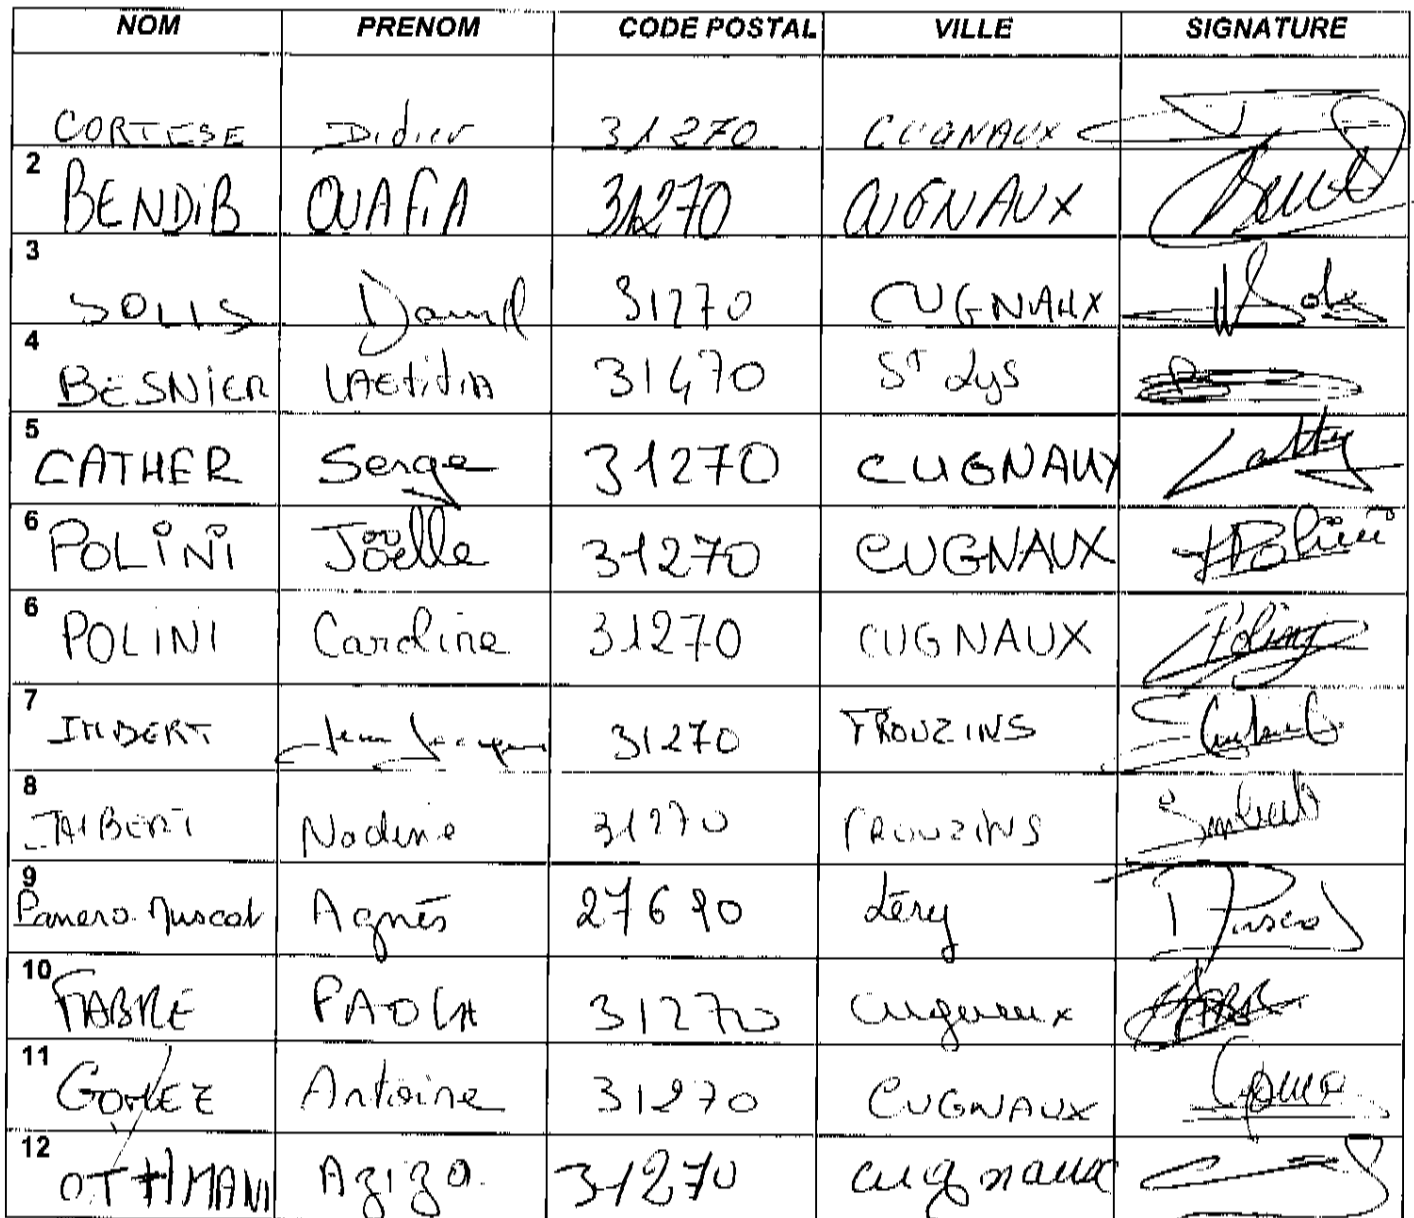 NOM PRENOM CODE POSTAL VILLE SIGNATURE
CORTESE Didier 31270 CUGNAUX
2 BENDIB OUAFIA 31270 CUGNAUX
3 SOLIS David 31270 CUGNAUX
4 BESNIER LAEtitiA 31470 St Lys
5 CATHER Serge 31270 CUGNAUX
6 POLINI Joëlle 31270 CUGNAUX Polini
6 POLINI Caroline 31270 CUGNAUX Polini
7 IMBERT Jean Jacques 31270 FROUZINS
8 IMBERT Nadine 31270 FROUZINS
9 Panero Muscat Agnès 27690 Léry
10 FABRE PAOLA 31270 Cugnaux
11 GOMEZ Antoine 31270 CUGNAUX
12 OTHMANI Aziza 31270 cugnaux